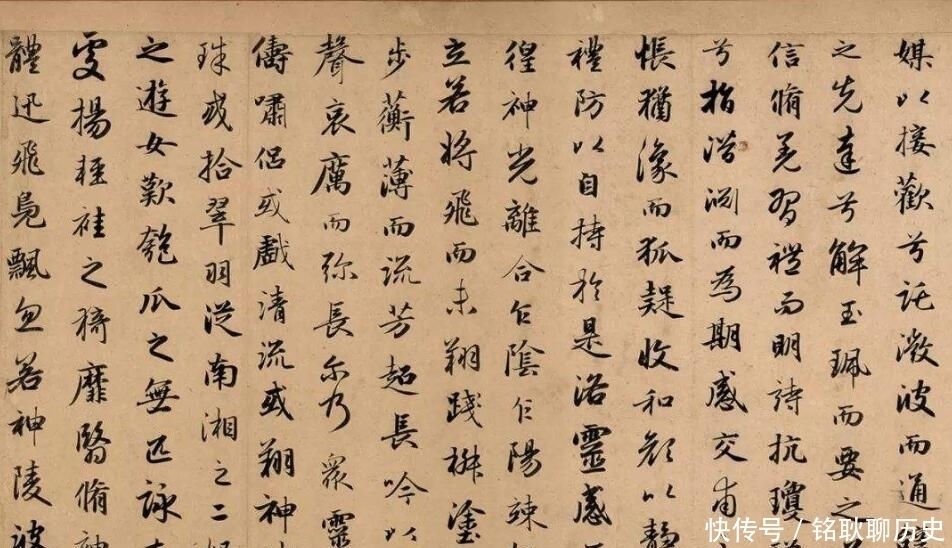 媒以接歡兮託微波而通
之先達兮解玉珮而要之
信脩羌習禮而明詩抗瓊
兮指潛淵而為期感交甫
悵猶豫而狐疑收和顏以靜
禮防以自持於是洛靈感
徨神光離合乍陰乍陽竦
立若將飛而未翔踐椒塗
步蘅薄而流芳超長吟以
聲哀厲而弥長尒乃眾靈
儔嘯侶或戲清流或翔神
珠或拾翠羽從南湘之二
之遊女歎匏瓜之無匹詠
處揚輕袿之猗靡翳脩
體迅飛鳧飄忽若神陵波
快传号／铭耿聊历史